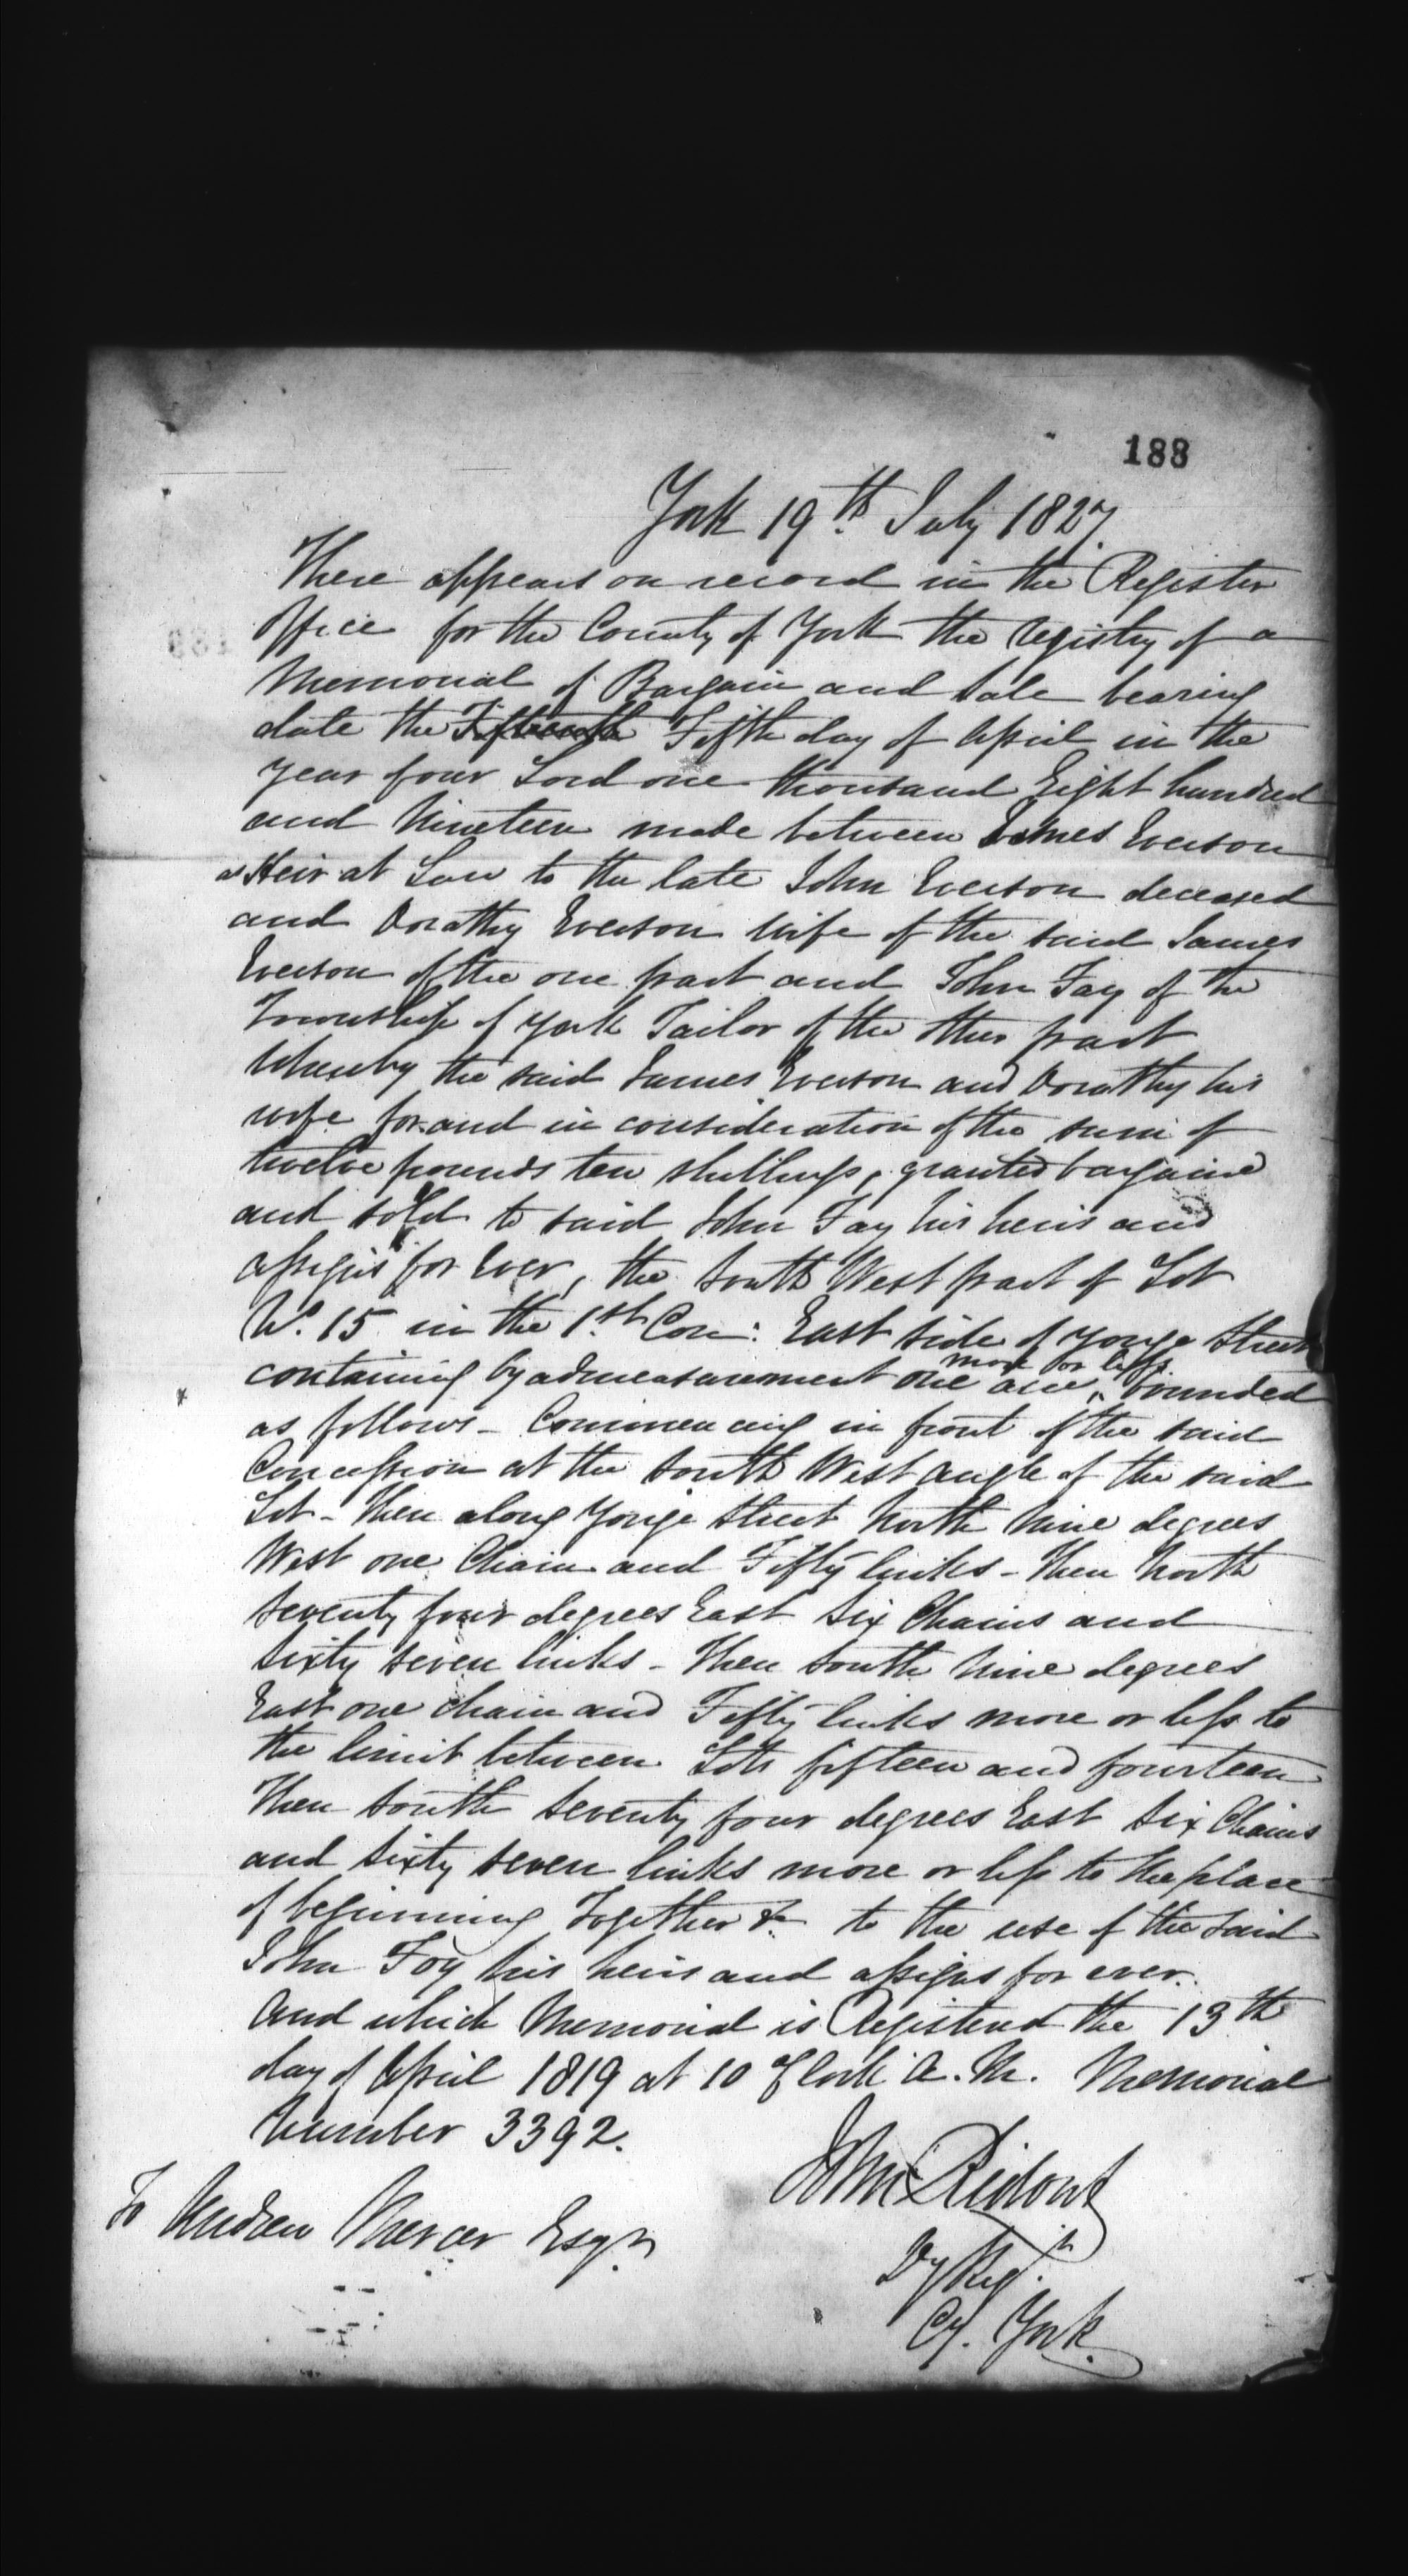 188
York 19th July 1827.
There appears on record in the Register
Office for the County of York the registry of a
Memorial of Bargain and Sale bearing
date the Fifteenth Fifth day of April in the
year four Lord one thousand Eight hundred
and Nineteen made between James Everson
as Heir at Law to the late John Everson deceased
and Dorathy Everson wife of the said James
Everson of the one part and John Fay of the
Township of York Tailor of the other part
Whereby the said James Everson and Dorathy his
wife for and in consideration of the sum of
twelve pounds ten shillings, granted bargained
and sold to said John Fay his heirs and
assigns for Ever, the South West part of Lot
No. 15 in the 1st Con: East side of Yonge Street
containing by admeasurement one acre more or less, bounded
as follows - Commencing in front of the said
Concession at the South West angle of the said
Lot - Then along Yonge Street North Nine degrees
West one Chain and Fifty links - Then North
Seventy four degrees East Six Chains and
Sixty seven links - Then South Nine degrees
East one chain and Fifty links more or less to
the limit between Lots fifteen and fourteen
Then South Seventy four degrees East Six Chains
and Sixty seven links more or less to the place
of beginning Together &c to the use of the said
John Foy his heirs and assigns for ever.
And which Memorial is Registered the 13th
day of April 1819 at 10 O'Clock A.M. Memorial
Number 3392.
John Ridout
Dy Regr.
Cy. York.
To Andrew Mercer Esqr